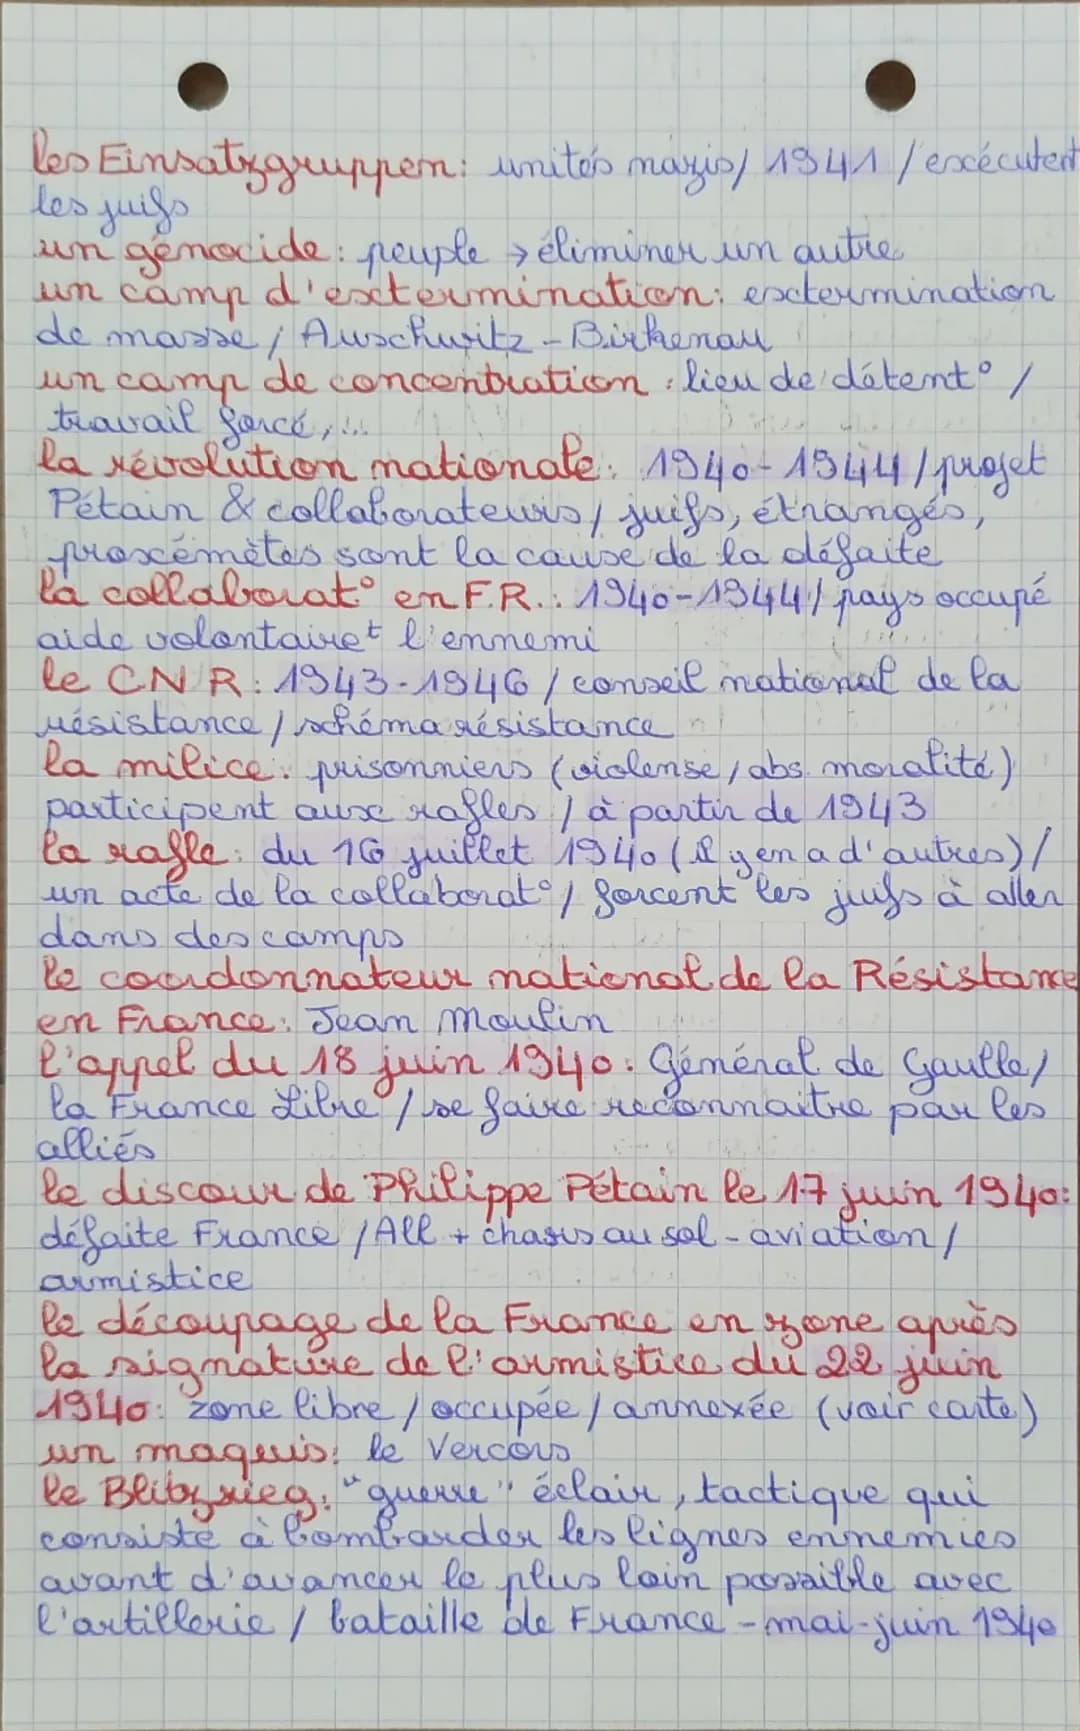 les Einsatzgruppen: unités nazis / 1941 / exécutent
les juifs
un génocide: peuple → éliminer un autre
un camp d'extermination: extermination
de masse / Auschwitz - Birkenau
un camp de concentration: lieu de détent° /
travail forcé, ...
la révolution nationale: 1940-1944 / projet
Pétain & collaborateurs / juifs, étrangés,
proxémètes sont la cause de la défaite
la collaborat° en F.R.: 1940-1944 / pays occupé
aide volontairet l'ennemi
le CNR: 1943-1946 / conseil national de la
résistance / schéma résistance
la milice: prisonniers (violense / abs. moralité)
participent aux rafles / à partir de 1943
la rafle: du 16 juillet 1940 (Il y en a d'autres) /
un acte de la collaborat° / forcent les juifs à aller
dans des camps
le coordonnateur national de la Résistance
en France: Jean Moulin
l'appel du 18 juin 1940: Général de Gaulle /
la France Libre / se faire reconnaitre par les
alliés
le discour de Philippe Pétain le 17 juin 1940:
défaite France / All + chars au sol - aviation /
armistice
le découpage de la France en zone après
la signature de l'armistice du 22 juin
1940: zone libre / occupée / annexée (voir carte)
un maquis: le Vercors
le Blitzrieg: "guerre" éclair, tactique qui
consiste à bombarder les lignes ennemies
avant d'avancer le plus loin possible avec
l'artillerie / bataille de France - mai-juin 1940